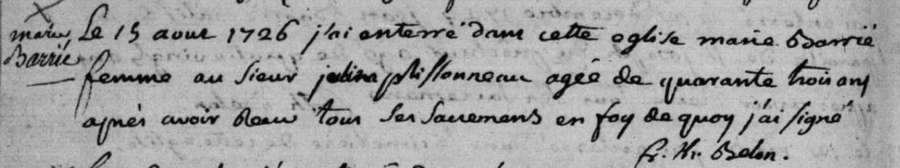 marie Le 15 aout 1726 j'ai enterré dans cette eglise marie Barrié
Barrié femme au sieur plissonneau agée de quarante trois ans
aprés avoir recu tous ses sacremens en foy de quoy j'ai signé
fr. Belon.